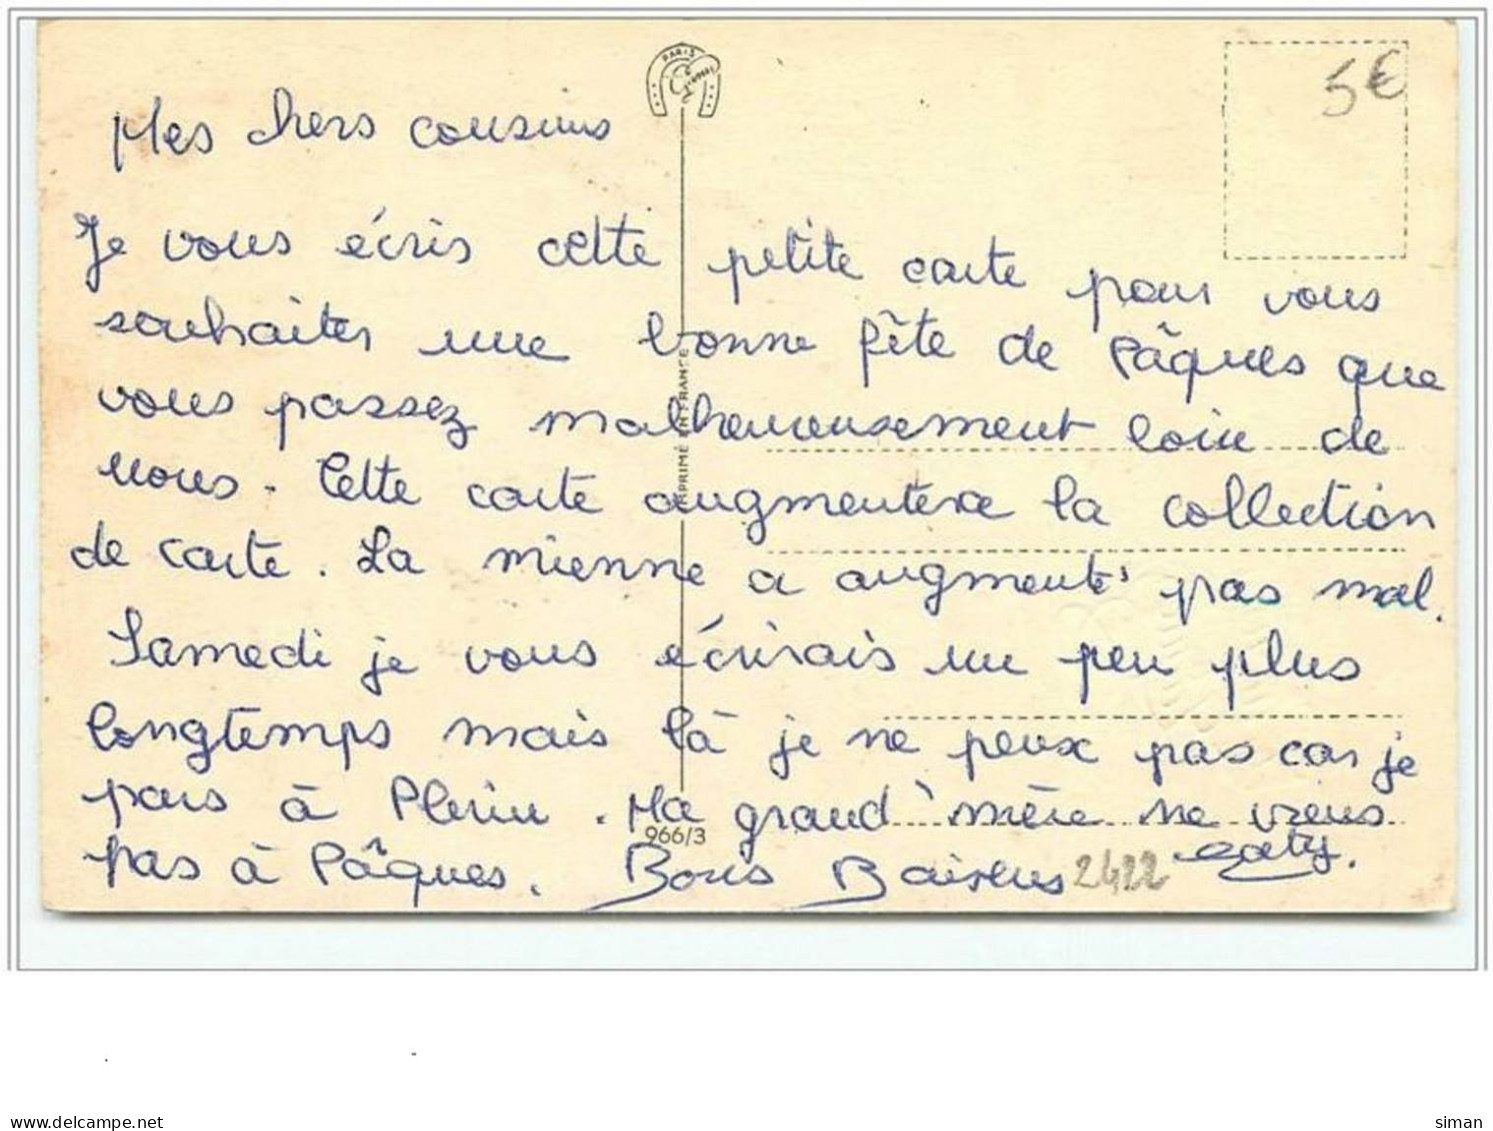 PARIS
5€
Mes chers cousins
Je vous écris cette petite carte pour vous
souhaiter une bonne fête de Pâques que
vous passez malheureusement loin de
nous. Cette carte augmentera la collection
de carte. La mienne a augmenté pas mal.
Samedi je vous écrirais un peu plus
longtemps mais là je ne peux pas car je
pars à Plerin. Ma grand'mère ne viens
pas à Pâques. Bons Baisers 2422 Caty.
IMPRIMÉ EN FRANCE
966/3
www.delcampe.net
siman